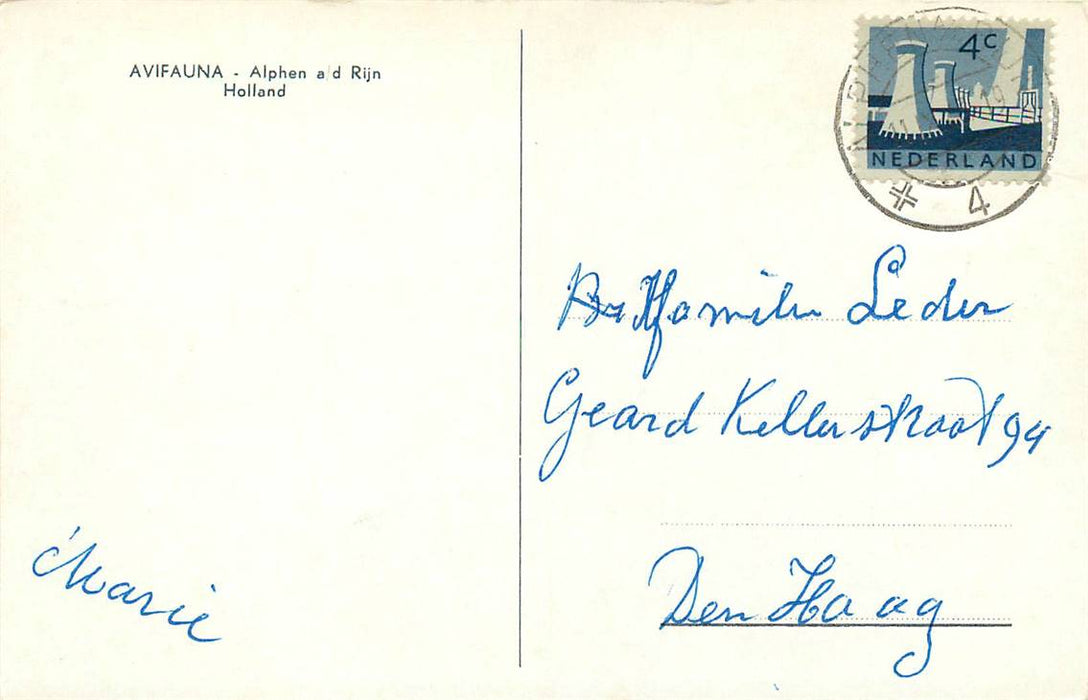 AVIFAUNA - Alphen a/d Rijn
Holland
4c
NEDERLAND
4
familie Leder
Geard Kellerstraat 94
Den Haag
Marie